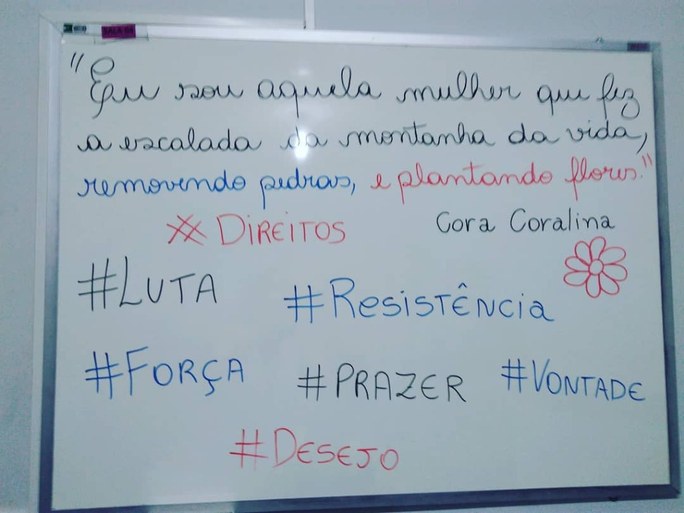 "Eu sou aquela mulher que fez
a escalada da montanha da vida,
removendo pedras, e plantando flores."
Cora Coralina
# DIREITOS
#LUTA
#RESISTÊNCIA
#FORÇA
#PRAZER
#VONTADE
#DESEJO